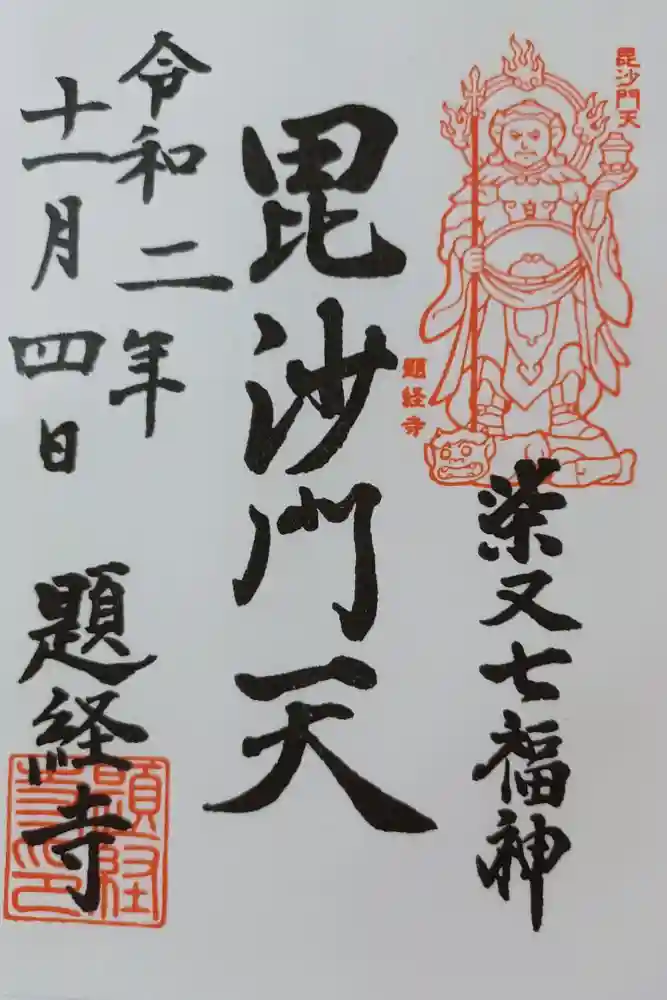 毘沙門天
題経寺
柴又七福神
毘沙門天
令和二年
十一月四日
題経寺
題経寺印